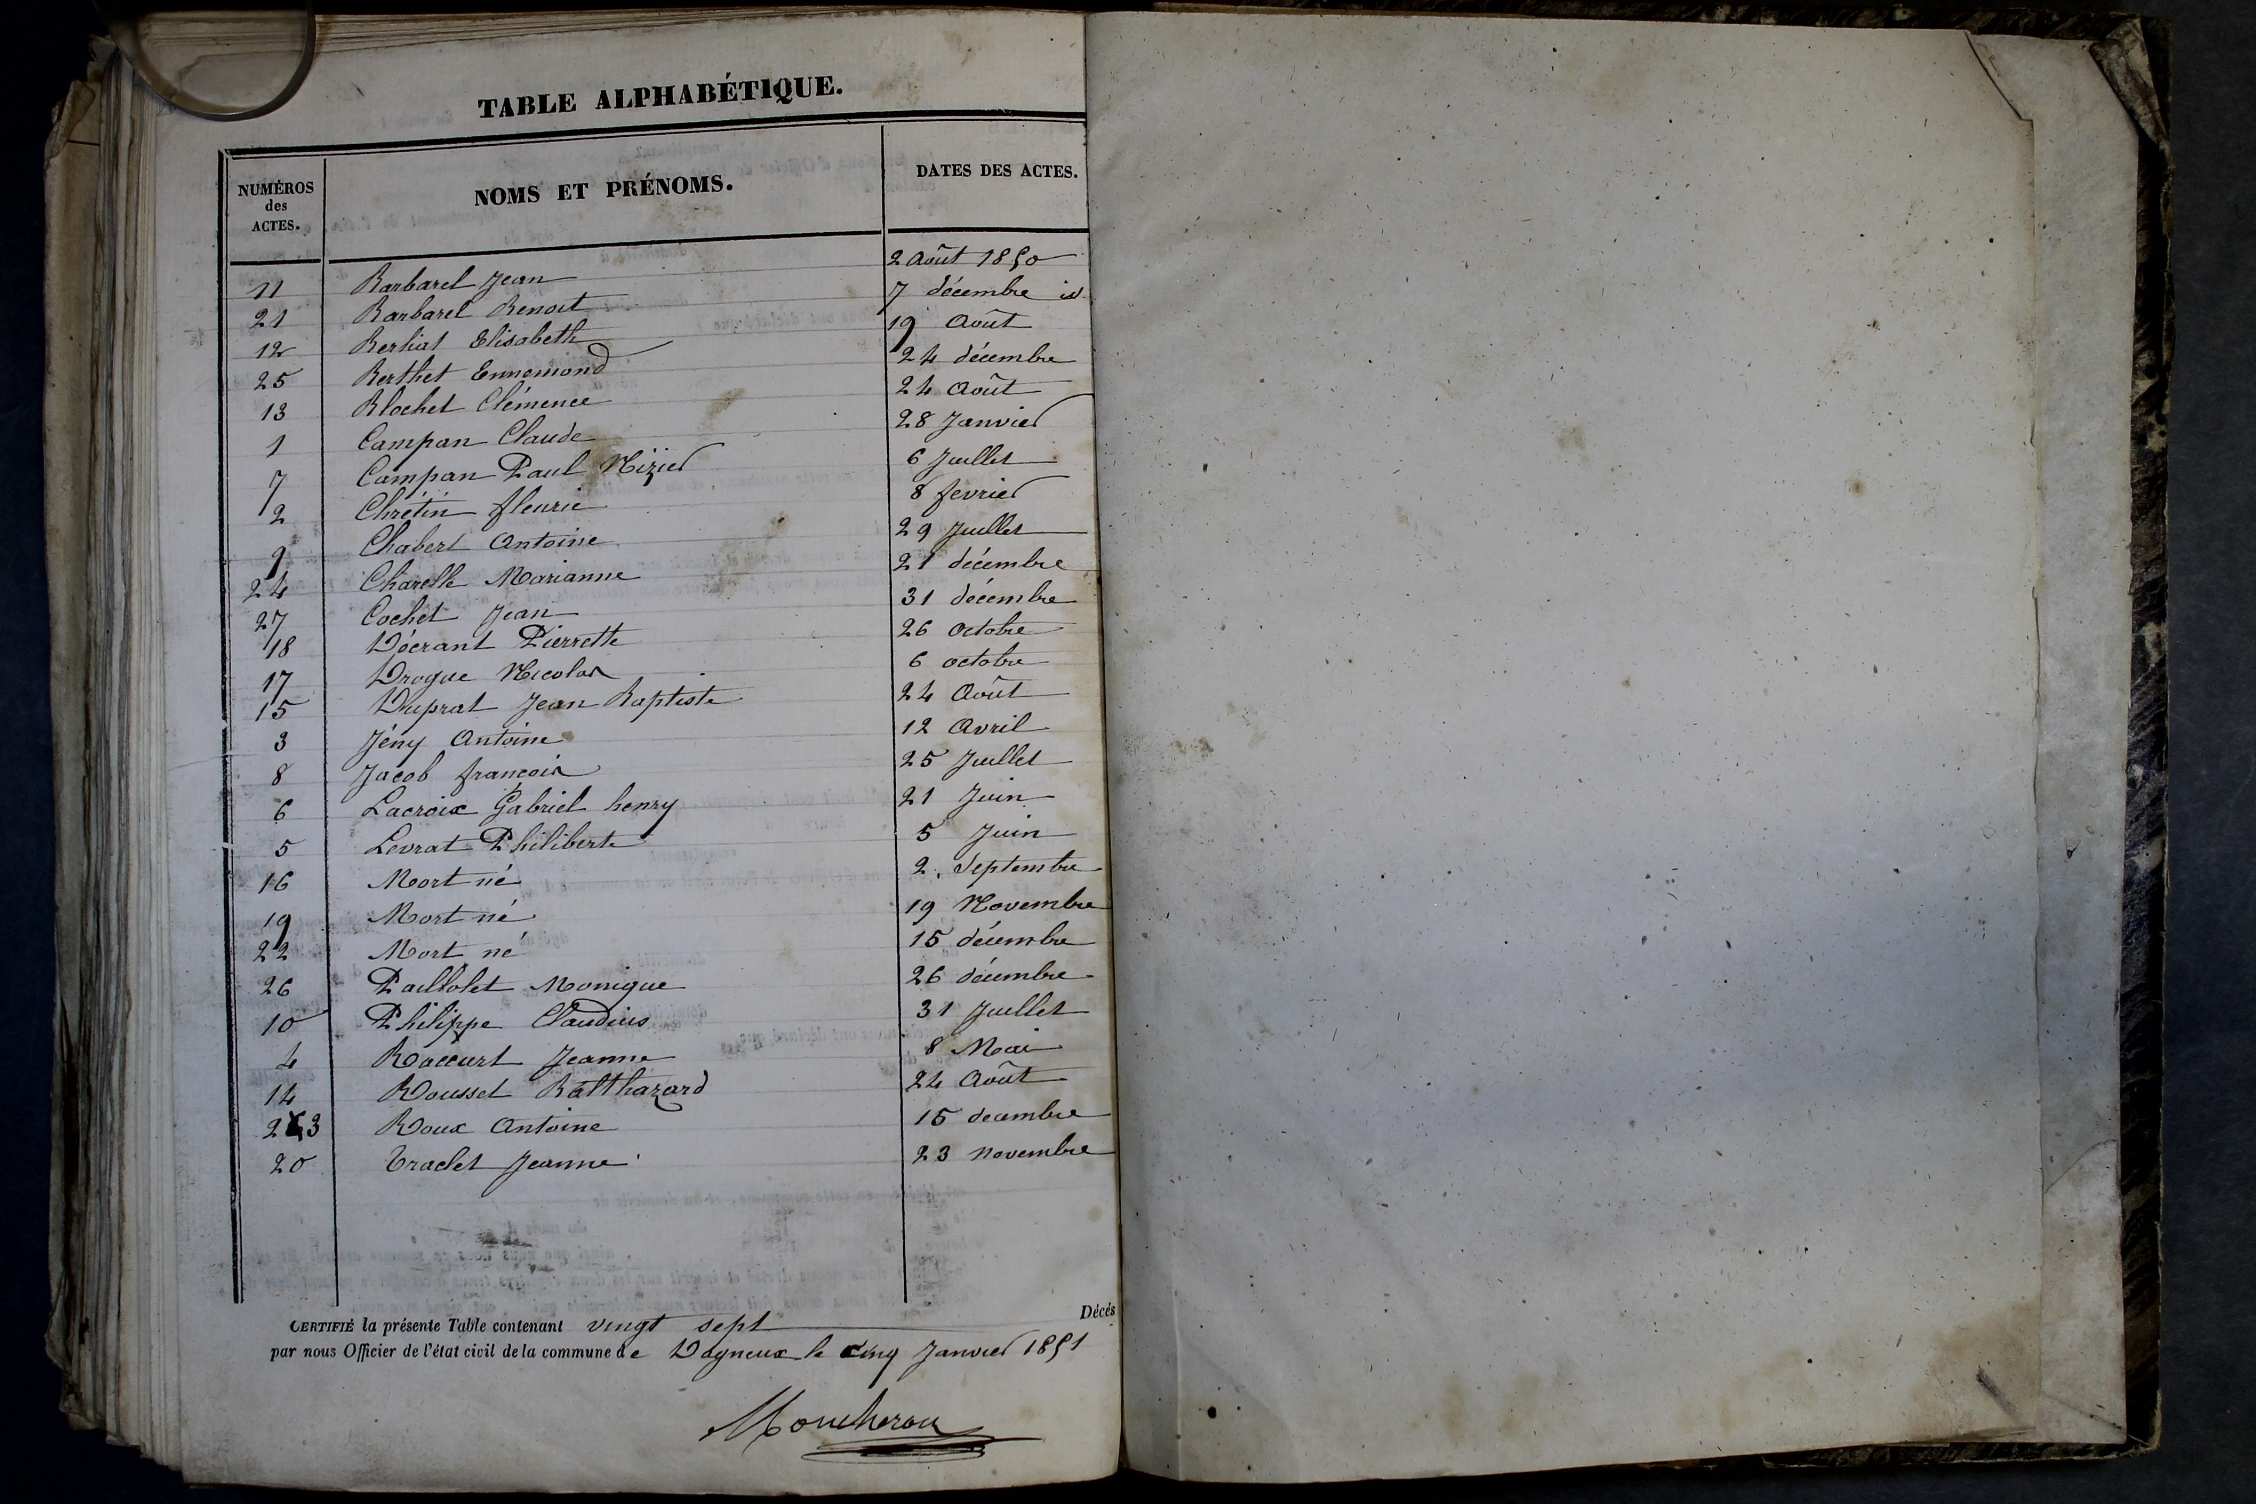 TABLE ALPHABÉTIQUE.
NUMÉROS des ACTES. NOMS ET PRÉNOMS. DATES DES ACTES.
11 Barbarel Jean 2 Août 1850
21 Barbarel Benoit 7 décembre id.
12 Berliat Elisabeth 19 Août
25 Berthet Ennemond 24 décembre
13 Blochet Clémence 24 Août
1 Campan Claude 28 Janvier
7 Campan Paul Nizier 6 Juillet
2 Chrétin fleurie 8 fevrier
9 Chabert Antoine 29 Juillet
24 Charelle Marianne 21 décembre
27 Cochet Jean 31 décembre
18 Décrant Pierrette 26 octobre
17 Drogue Nicolas 6 octobre
15 Duprat Jean Baptiste 24 Août
3 Jény Antoine 12 Avril
8 Jacob françois 25 Juillet
6 Lacroix Gabriel henry 21 Juin
5 Levrat Philiberte 5 Juin
16 Mort né 2 Septembre
19 Mort né 19 Novembre
22 Mort né 15 décembre
26 Paillolet Monique 26 décembre
10 Philippe Claudius 31 Juillet
4 Roccurt Jeanne 8 Mai
14 Rousset Balthazard 24 Août
23 Roux Antoine 15 decembre
20 Traclet Jeanne 23 novembre
CERTIFIÉ la présente Table contenant vingt sept Décès
par nous Officier de l'état civil de la commune de Dagneux le cinq Janvier 1851
Moucheron